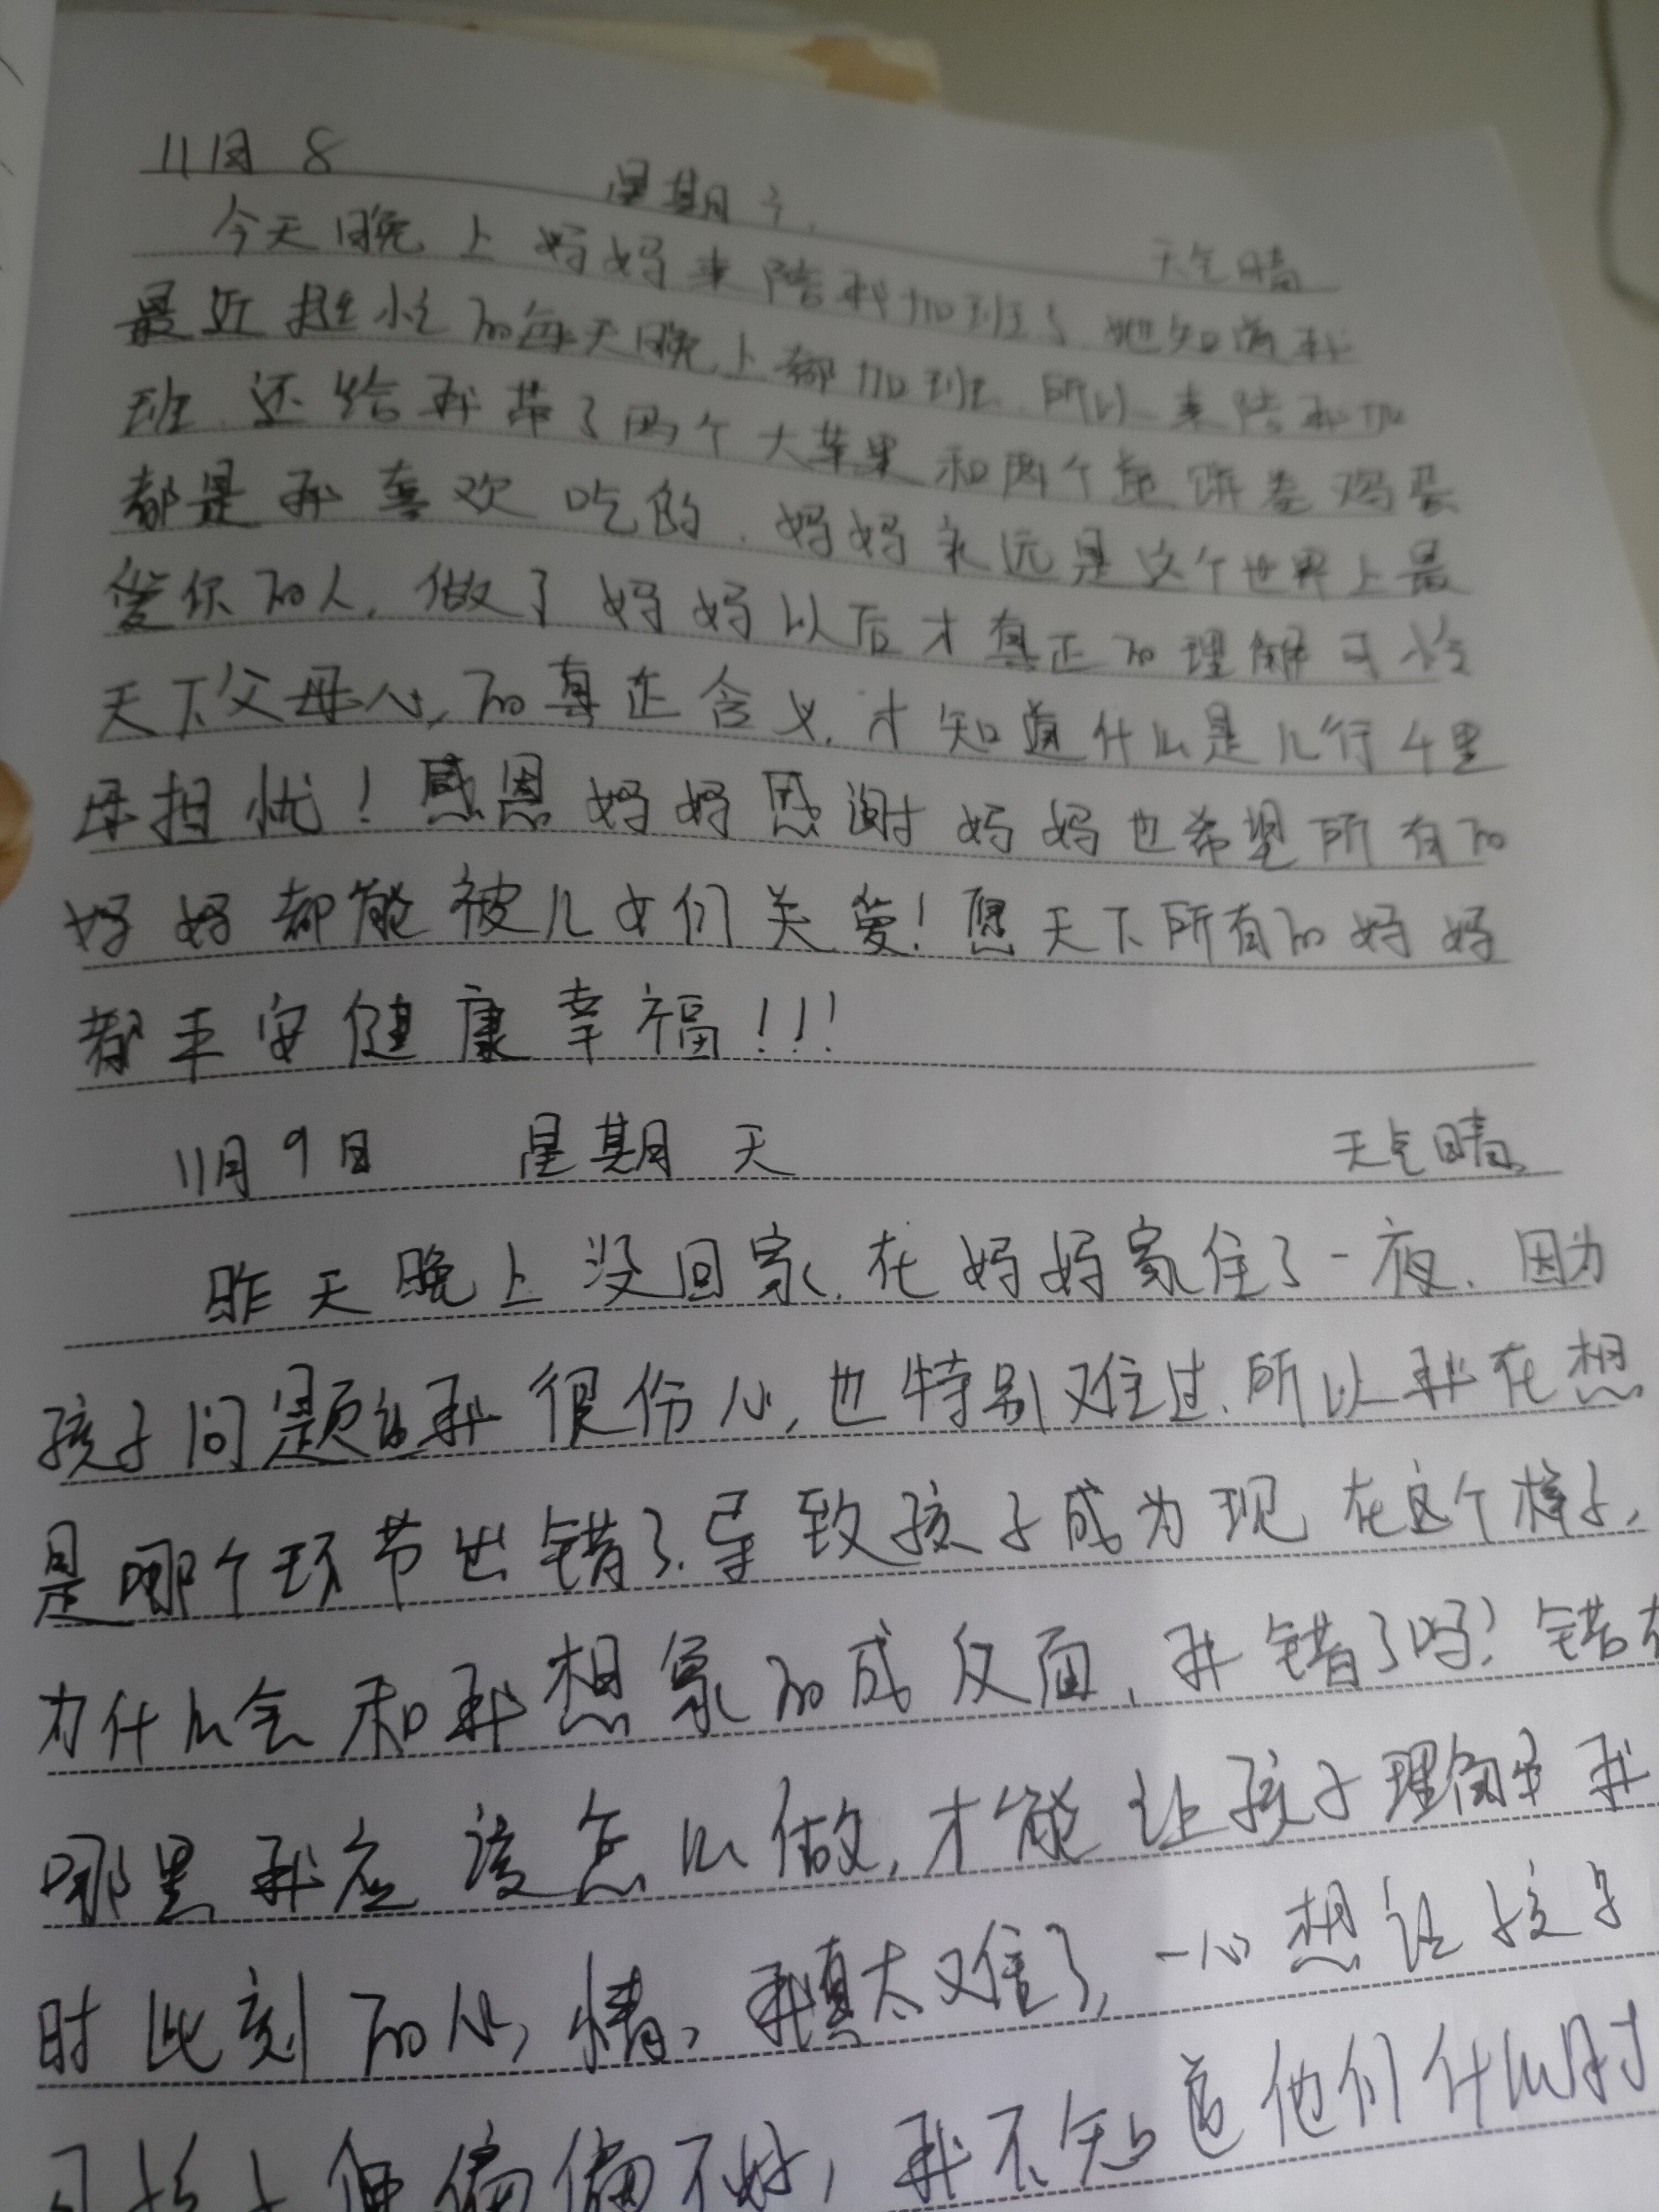 11月8 星期 天气晴
今天晚上妈妈来陪我加班了她知道我
最近挺忙的每天晚上都加班.所以来陪我加
班.还给我带了两个大苹果和两个煎饼卷鸡蛋
都是我喜欢吃的.妈妈永远是这个世界上最
爱你的人.做了妈妈以后才真正的理解可怜
天下父母心,的真正含义.才知道什么是儿行千里
母担忧!感恩妈妈感谢妈妈也希望所有的
妈妈都能被儿女们关爱!愿天下所有的妈妈
都平安健康幸福!!!
11月9日 星期天 天气晴
昨天晚上没回家.在妈妈家住了一夜.因为
孩子问题我很份心,也特别难过.所以我在想
是哪个环节出错了.导致孩子成为现在这个样子,
为什么会和我想象的成反面,我错了吗?错在
哪里我应该怎么做,才能让孩子理解我
时此刻的心情,我真太难了,一心想让孩子
偏偏不好,我不知道他们什么时